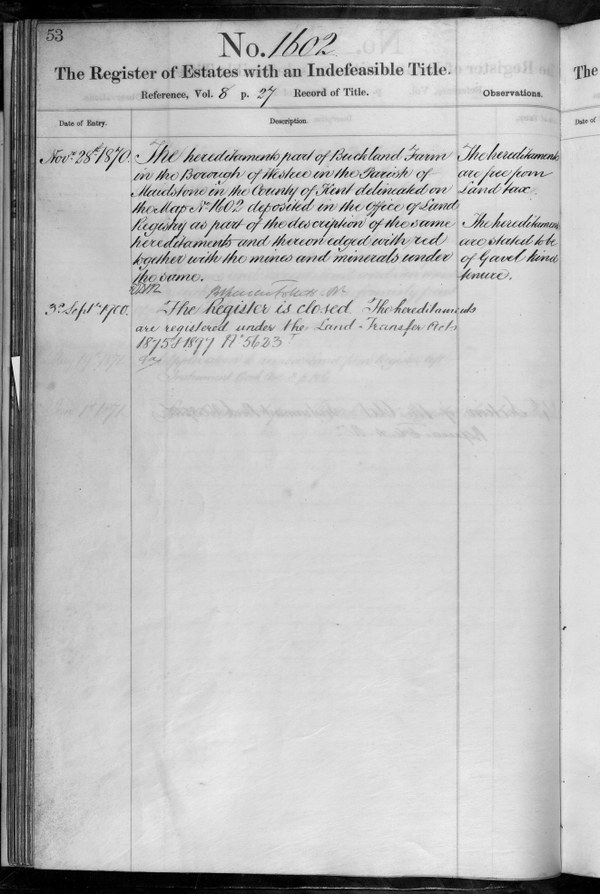 53
No. 1602
The Register of Estates with an Indefeasible Title.
Reference, Vol. 8 p. 27 Record of Title.
Observations.
Date of Entry.
Description.
Novr. 28th 1870.
The hereditaments part of Buckland Farm
in the Borough of Westree in the Parish of
Maidstone in the County of Kent delineated on
the Map No. 1602 deposited in the Office of Land
Registry as part of the description of the same
hereditaments and thereon edged with red
together with the mines and minerals under
the same.
The hereditaments
are free from
Land tax.
The hereditaments
are stated to be
of Gavel kind
tenure.
3d. Septr. 1900.
The Register is closed. The hereditaments
are registered under the Land Transfer Acts
1875 & 1897 No 5623
The
Date of